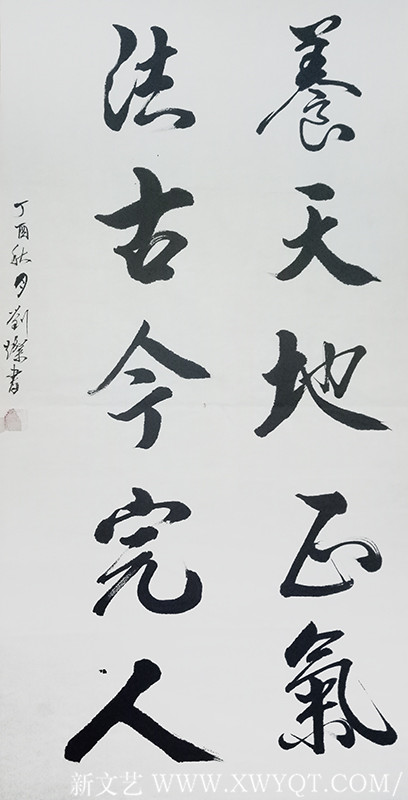 養天地正氣
法古今完人
丁酉秋月劉燦書
新文艺 WWW.XWYQT.COM/